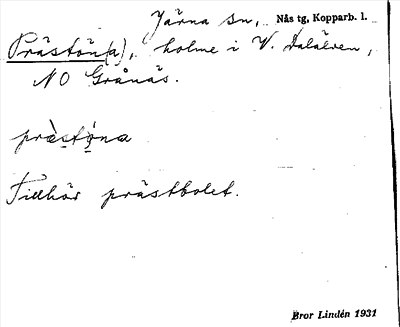 Järna sn, Nås tg, Kopparb. l.
Prästön(a), holme i V. Dalälven,
NO Grånäs.
prästöna
Tillhör prästbolet.
Bror Lindén 1931